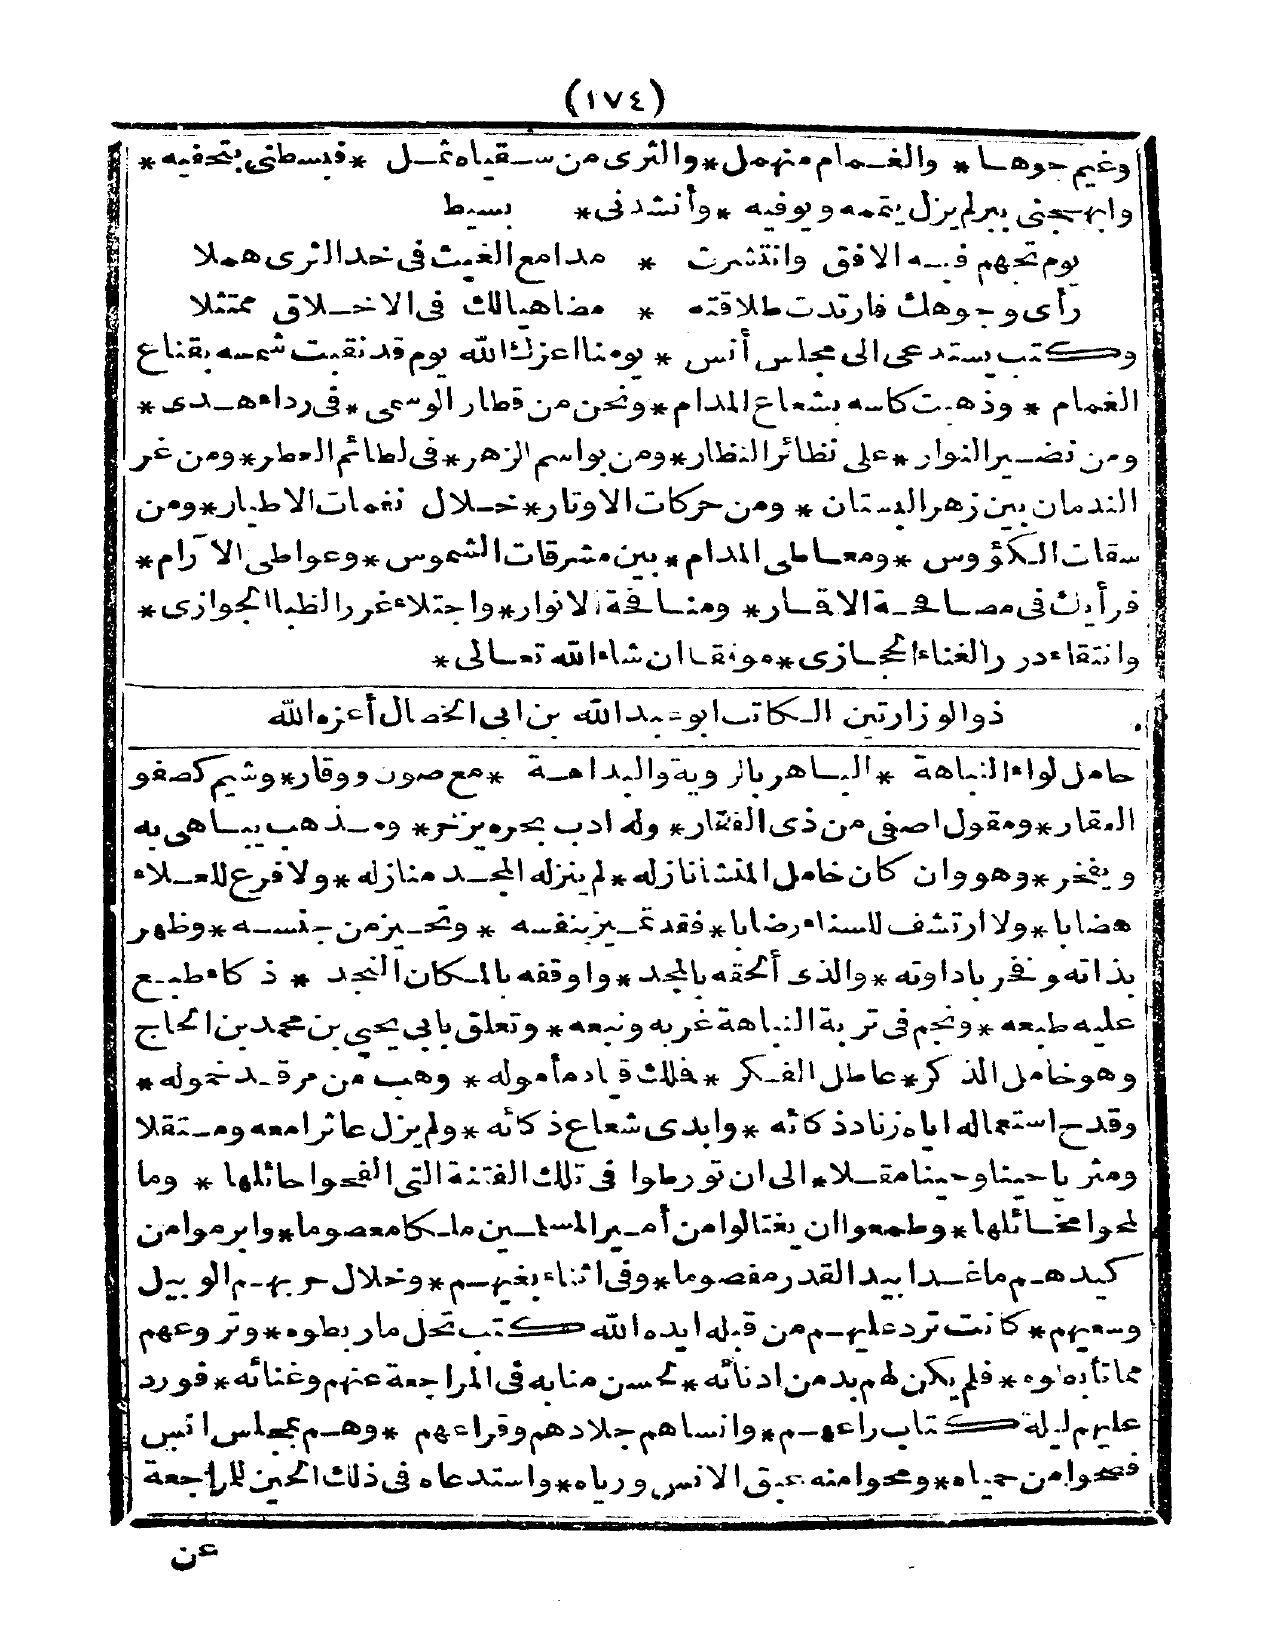 (١٧٤)
وغيم جوها * والغمام منهمل * والثرى من سقياه ثمل * فبسطنى بتحفيه *
وابهجنى ببر لم يزل يتممه ويوفيه * وأنشدنى * بسيط
يوم تجهم فيه الافق وانتشرت * مدامع الغيث فى خد الثرى هملا
رأى وجوهك فارتدت طلاقته * مضاهيا لك فى الاخلاق ممتثلا
وكتب يستدعى الى مجلس أنس * يومنا اعزك الله يوم قد نقبت شمسه بقناع
الغمام * وذهبت كاسه بشعاع المدام * ونحن من قطار الوسمى * فى رداء هدى *
ومن نضير النوار * على نظائر النظار * ومن بواسم الزهر * فى لطائم العطر * ومن غر
الندمان بين زهر البستان * ومن حركات الاوتار * خلال نغمات الاطيار * ومن
سقات الكؤوس * ومعاطى المدام * بين مشرقات الشموس * وعواطى الآرام *
فرأيك فى مصافحة الاقمار * ومنافحة الانوار * واجتلاء غرر الظبا الجوازى *
وانتقاء درر الغناء الحجازى * موفقا ان شاء الله تعالى *
ذو الوزارتين الكاتب ابو عبد الله بن ابى الخصال أعزه الله
حامل لواء النباهة * الباهر بالروية والبداهة * مع صون ووقار * وشيم كصفو
العقار * ومقول اصفى من ذى الفقار * وله ادب بحره يزخر * ومذهب يباهى به
ويفخر * وهو وان كان خامل المنشا نازله * لم ينزله المجد منازله * ولا فرع للعلاء
هضابا * ولا ارتشف للسناء رضابا * فقد تميز بنفسه * وتحيز من جنسه * وظهر
بذاته وفخر باداوته * والذى ألحقه بالمجد * واوقفه بالمكان النجد * ذكاء طبع
عليه طبعه * ونجم فى تربة النباهة غربه ونبعه * وتعلق بابى يحيى بن محمد بن الحاج
وهو خامل الذكر * عاطل الفكر * فلك قياد مأموله * وهب من مرقد خموله *
وقدح استعماله اياه زناد ذكائه * وابدى شعاع ذكائه * ولم يزل عاثرا معه ومستقلا
ومثريا حينا وحينا مقلا * الى ان تورطوا فى تلك الفتنة التى الفحوا حائلها * وما
لمحوا مخائلها * وطمعوا ان يغتالوا من أمير المسلمين ملكا معصوما * وابرموا من
كيدهم ما غدا بيد القدر مفصوما * وفى اثناء بغيهم * وخلال حربهم الوبيل
وسعيهم * كانت ترد عليهم من قبله ايده الله كتب تحل ما ربطوه * وتروعهم
مما تأبطوه * فلم يكن لهم بد من ادنائه * لحسن منابه فى المراجعة عنهم وغنائه * فورد
عليهم ليلة كتاب راعهم * وانساهم جلادهم وقراعهم * وهم بمجلس انس
فصحوا من حمياه * ومحوا منه عبق الانس ورياه * واستدعاه فى ذلك الحين للمراجعة
عن